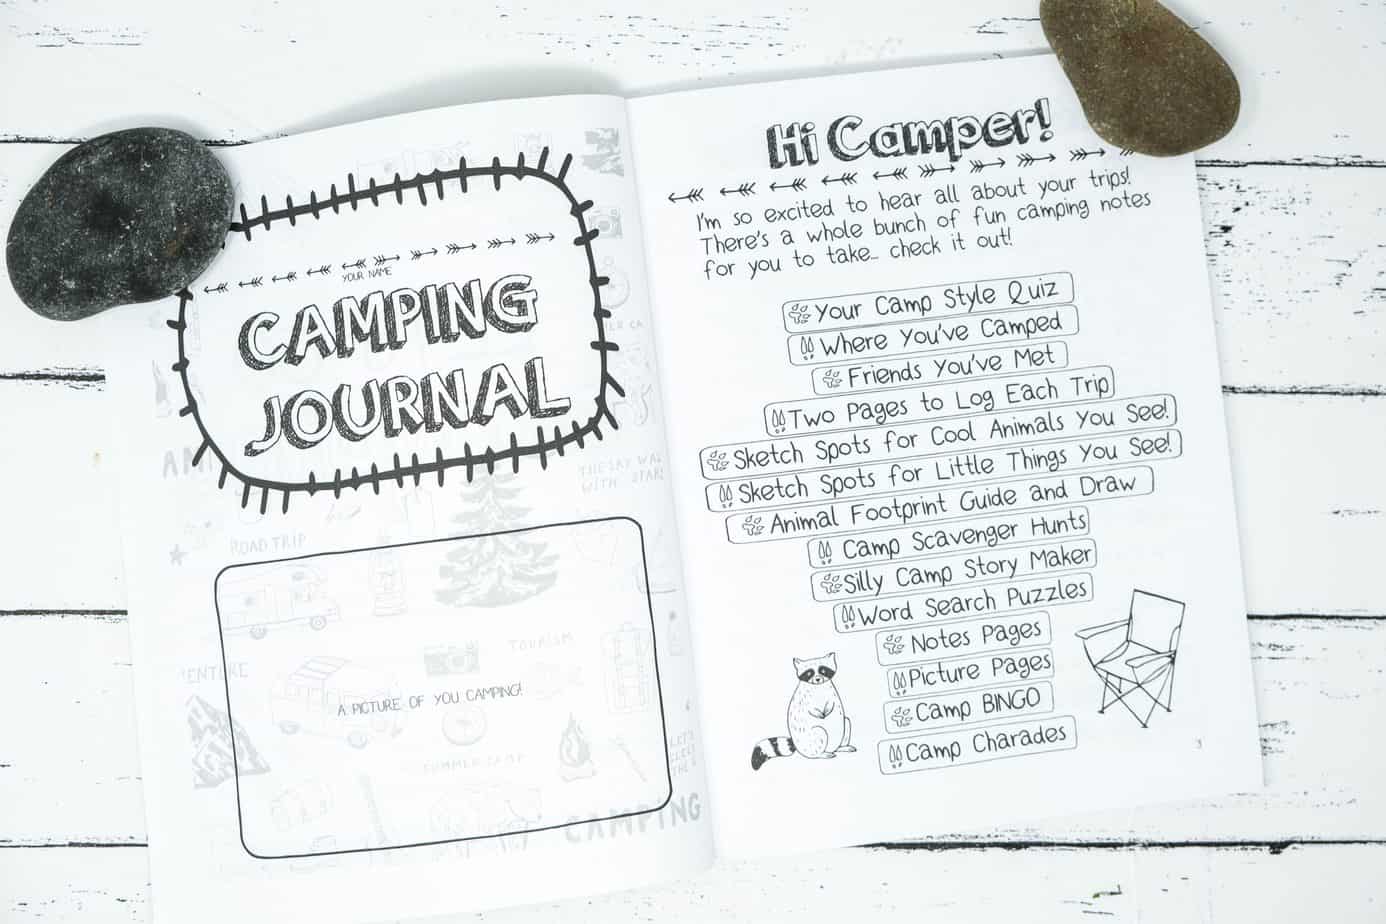 YOUR NAME
CAMPING
JOURNAL
ROAD TRIP
THE SKY WAS
WITH STARS
TOURISM
A PICTURE OF YOU CAMPING!
SUMMER CAMP
CAMPING
Hi Camper!
I'm so excited to hear all about your trips!
There's a whole bunch of fun camping notes
for you to take... check it out!
Your Camp Style Quiz
Where You've Camped
Friends You've Met
Two Pages to Log Each Trip
Sketch Spots for Cool Animals You See!
Sketch Spots for Little Things You See!
Animal Footprint Guide and Draw
Camp Scavenger Hunts
Silly Camp Story Maker
Word Search Puzzles
Notes Pages
Picture Pages
Camp BINGO
Camp Charades
3